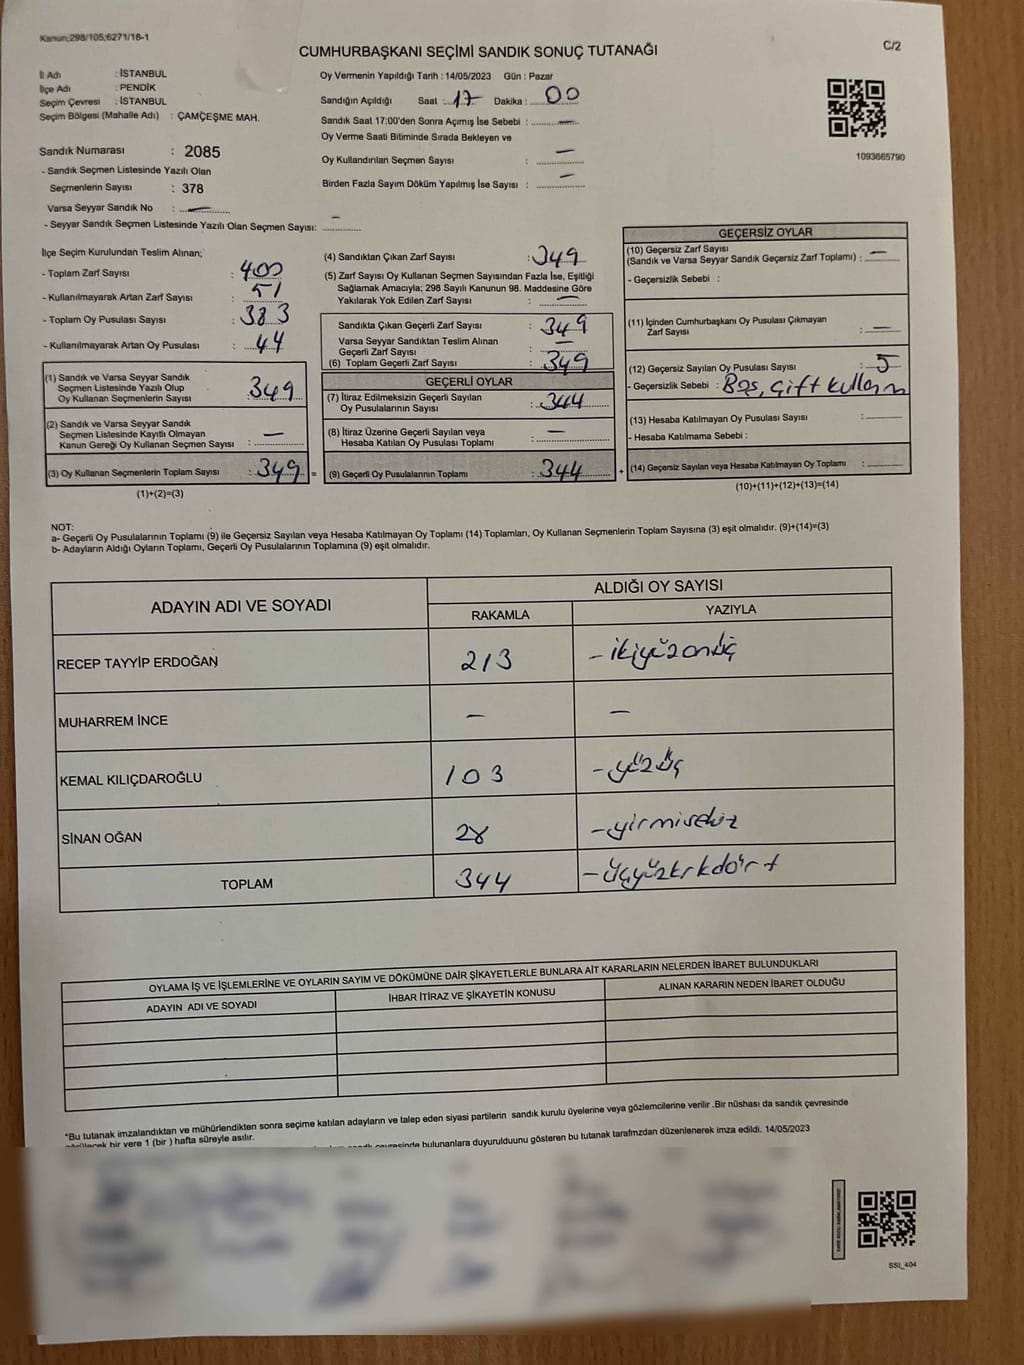 Kanun;298/105;6271/18-1
CUMHURBAŞKANI SEÇİMİ SANDIK SONUÇ TUTANAĞI
C/2
İl Adı : İSTANBUL
İlçe Adı : PENDİK
Seçim Çevresi : İSTANBUL
Seçim Bölgesi (Mahalle Adı) : ÇAMÇEŞME MAH.
Sandık Numarası : 2085
- Sandık Seçmen Listesinde Yazılı Olan
Seçmenlerin Sayısı : 378
Varsa Seyyar Sandık No : —
- Seyyar Sandık Seçmen Listesinde Yazılı Olan Seçmen Sayısı: —
Oy Vermenin Yapıldığı Tarih : 14/05/2023 Gün : Pazar
Sandığın Açıldığı Saat : 17 Dakika : 00
Sandık Saat 17:00'den Sonra Açımış İse Sebebi : —
Oy Verme Saati Bitiminde Sırada Bekleyen ve
Oy Kullandırılan Seçmen Sayısı : —
Birden Fazla Sayım Döküm Yapılmış İse Sayısı : —
1093665790
İlçe Seçim Kurulundan Teslim Alınan;
- Toplam Zarf Sayısı : 400
- Kullanılmayarak Artan Zarf Sayısı : 51
- Toplam Oy Pusulası Sayısı : 383
- Kullanılmayarak Artan Oy Pusulası : 44
(1) Sandık ve Varsa Seyyar Sandık
Seçmen Listesinde Yazılı Olup
Oy Kullanan Seçmenlerin Sayısı : 349
(2) Sandık ve Varsa Seyyar Sandık
Seçmen Listesinde Kayıtlı Olmayan
Kanun Gereği Oy Kullanan Seçmen Sayısı : —
(3) Oy Kullanan Seçmenlerin Toplam Sayısı : 349 =
(1)+(2)=(3)
(4) Sandıktan Çıkan Zarf Sayısı : 349
(5) Zarf Sayısı Oy Kullanan Seçmen Sayısından Fazla İse, Eşitliği
Sağlamak Amacıyla; 298 Sayılı Kanunun 98. Maddesine Göre
Yakılarak Yok Edilen Zarf Sayısı : —
Sandıkta Çıkan Geçerli Zarf Sayısı : 349
Varsa Seyyar Sandıktan Teslim Alınan
Geçerli Zarf Sayısı : —
(6) Toplam Geçerli Zarf Sayısı : 349
GEÇERLİ OYLAR
(7) İtiraz Edilmeksizin Geçerli Sayılan
Oy Pusulalarının Sayısı : 344
(8) İtiraz Üzerine Geçerli Sayılan veya
Hesaba Katılan Oy Pusulası Toplamı : —
(9) Geçerli Oy Pusulalarının Toplamı : 344 +
GEÇERSİZ OYLAR
(10) Geçersiz Zarf Sayısı
(Sandık ve Varsa Seyyar Sandık Geçersiz Zarf Toplamı) : —
- Geçersizlik Sebebi :
(11) İçinden Cumhurbaşkanı Oy Pusulası Çıkmayan
Zarf Sayısı : —
(12) Geçersiz Sayılan Oy Pusulası Sayısı : 5
- Geçersizlik Sebebi : Boş, Çift kullanım
(13) Hesaba Katılmayan Oy Pusulası Sayısı :
- Hesaba Katılmama Sebebi :
(14) Geçersiz Sayılan veya Hesaba Katılmayan Oy Toplamı :
(10)+(11)+(12)+(13)=(14)
NOT:
a- Geçerli Oy Pusulalarının Toplamı (9) ile Geçersiz Sayılan veya Hesaba Katılmayan Oy Toplamı (14) Toplamları, Oy Kullanan Seçmenlerin Toplam Sayısına (3) eşit olmalıdır. (9)+(14)=(3)
b- Adayların Aldığı Oyların Toplamı, Geçerli Oy Pusulalarının Toplamına (9) eşit olmalıdır.
ADAYIN ADI VE SOYADI
ALDIĞI OY SAYISI
RAKAMLA YAZIYLA
RECEP TAYYİP ERDOĞAN 213 - ikiyüzonüç
MUHARREM İNCE — —
KEMAL KILIÇDAROĞLU 103 - yüzüç
SİNAN OĞAN 28 - yirmisekiz
TOPLAM 344 - Üçyüzkırkdört
OYLAMA İŞ VE İŞLEMLERİNE VE OYLARIN SAYIM VE DÖKÜMÜNE DAİR ŞİKAYETLERLE BUNLARA AİT KARARLARIN NELERDEN İBARET BULUNDUKLARI
ADAYIN ADI VE SOYADI İHBAR İTİRAZ VE ŞİKAYETİN KONUSU ALINAN KARARIN NEDEN İBARET OLDUĞU
*Bu tutanak imzalandıktan ve mühürlendikten sonra seçime katılan adayların ve talep eden siyasi partilerin sandık kurulu üyelerine veya gözlemcilerine verilir .Bir nüshası da sandık çevresinde
görülecek bir yere 1 (bir ) hafta süreyle asılır.
çevresinde bulunanlara duyurulduunu gösteren bu tutanak tarafmzdan düzenlenerek imza edildi. 14/05/2023
SSI_404